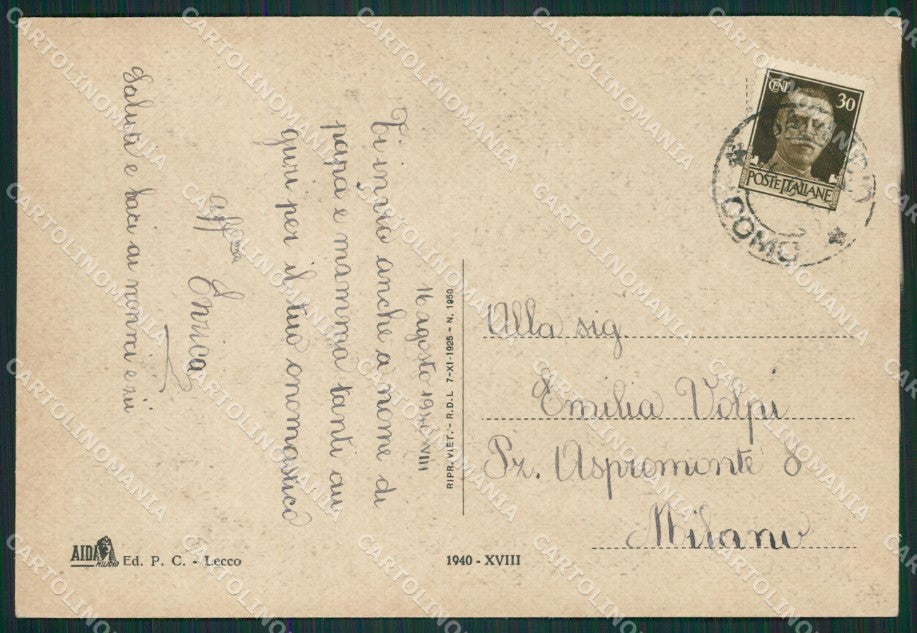 16 agosto 1940 XVIII
Ti invio anche a nome di
papà e mamma tanti au
guri per il tuo onomastico
aff.ma Enrica
Saluti e baci ai nonni e zii
CENT 30
POSTE ITALIANE
COMO
Alla sig
Emilia Volpi
Pz. Aspromonte 8
Milano
RIPR. VIET. - R.D.L 7-XI-1925 - N. 1950
AIDA MILANO Ed. P. C. - Lecco
1940 - XVIII
CARTOLINOMANIA